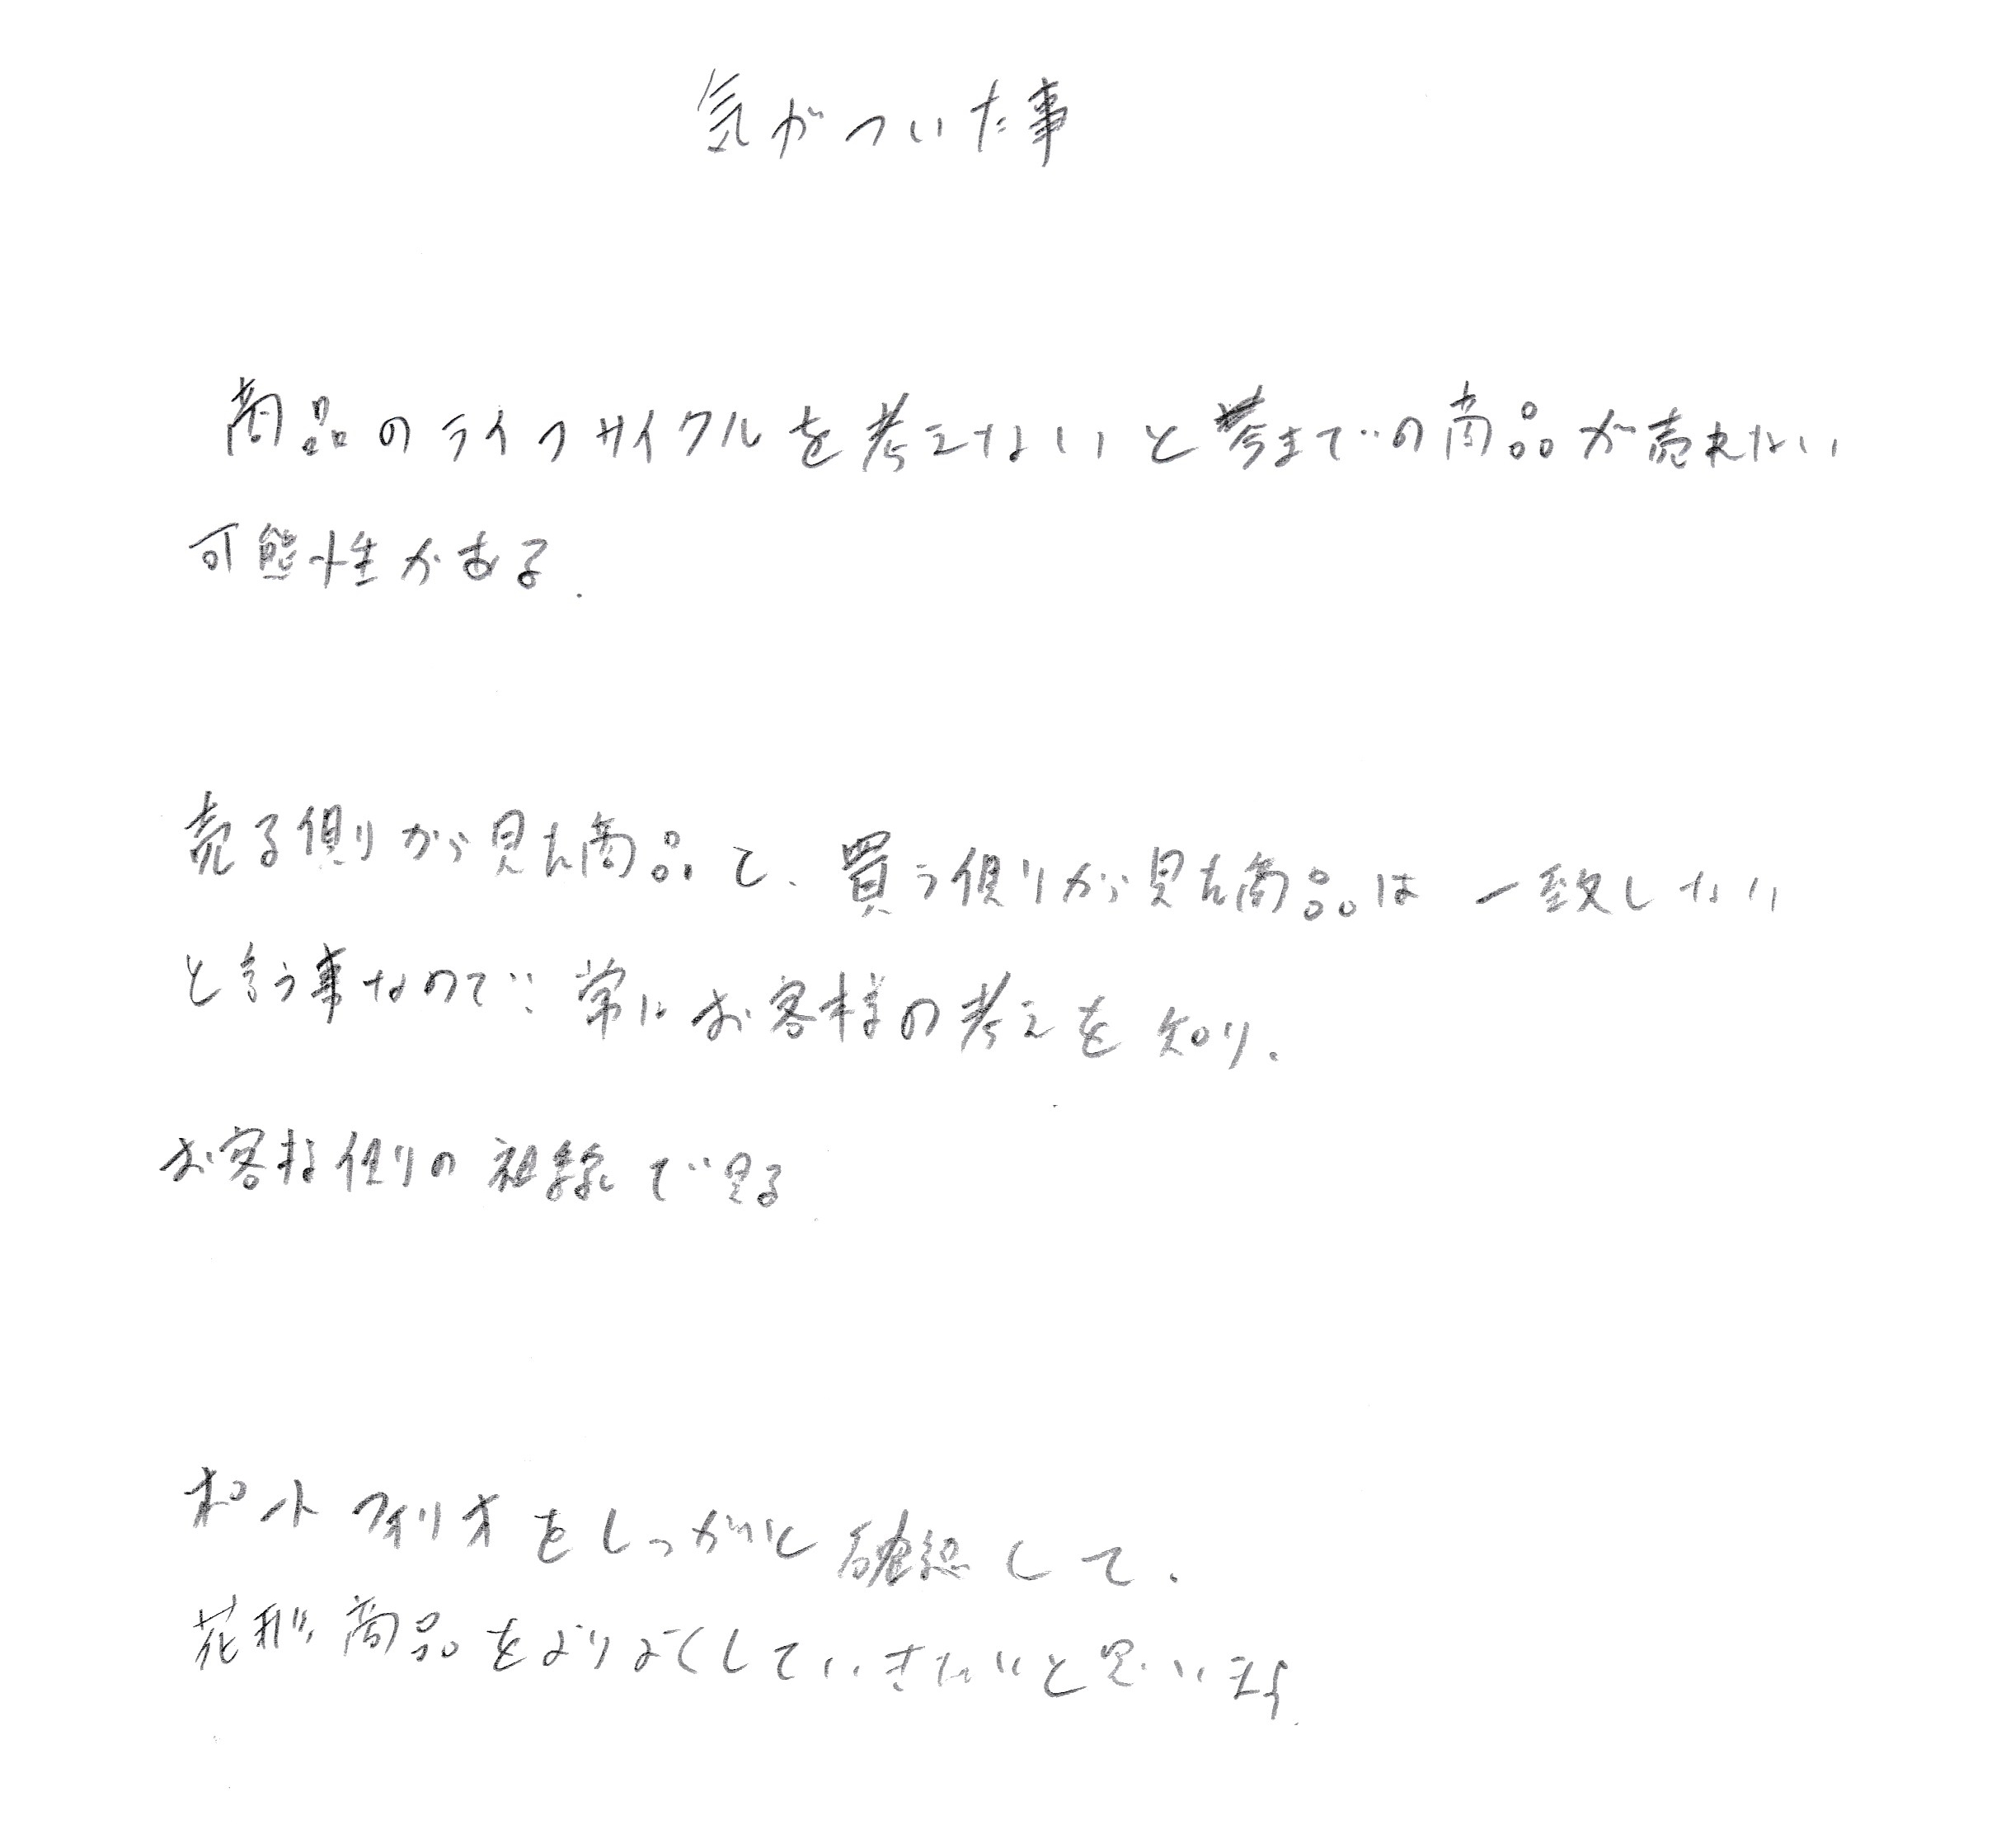 気がついた事
商品のライフサイクルを考えないと今までの商品が売れない
可能性がある.
売る側から見た商品と、買う側から見た商品は一致しない
と言う事なので、常にお客様の考えを知り、
お客様側の視線で見る
ポートフォリオをしっかりと確認して、
花形商品をよりよくしていきたいと思います